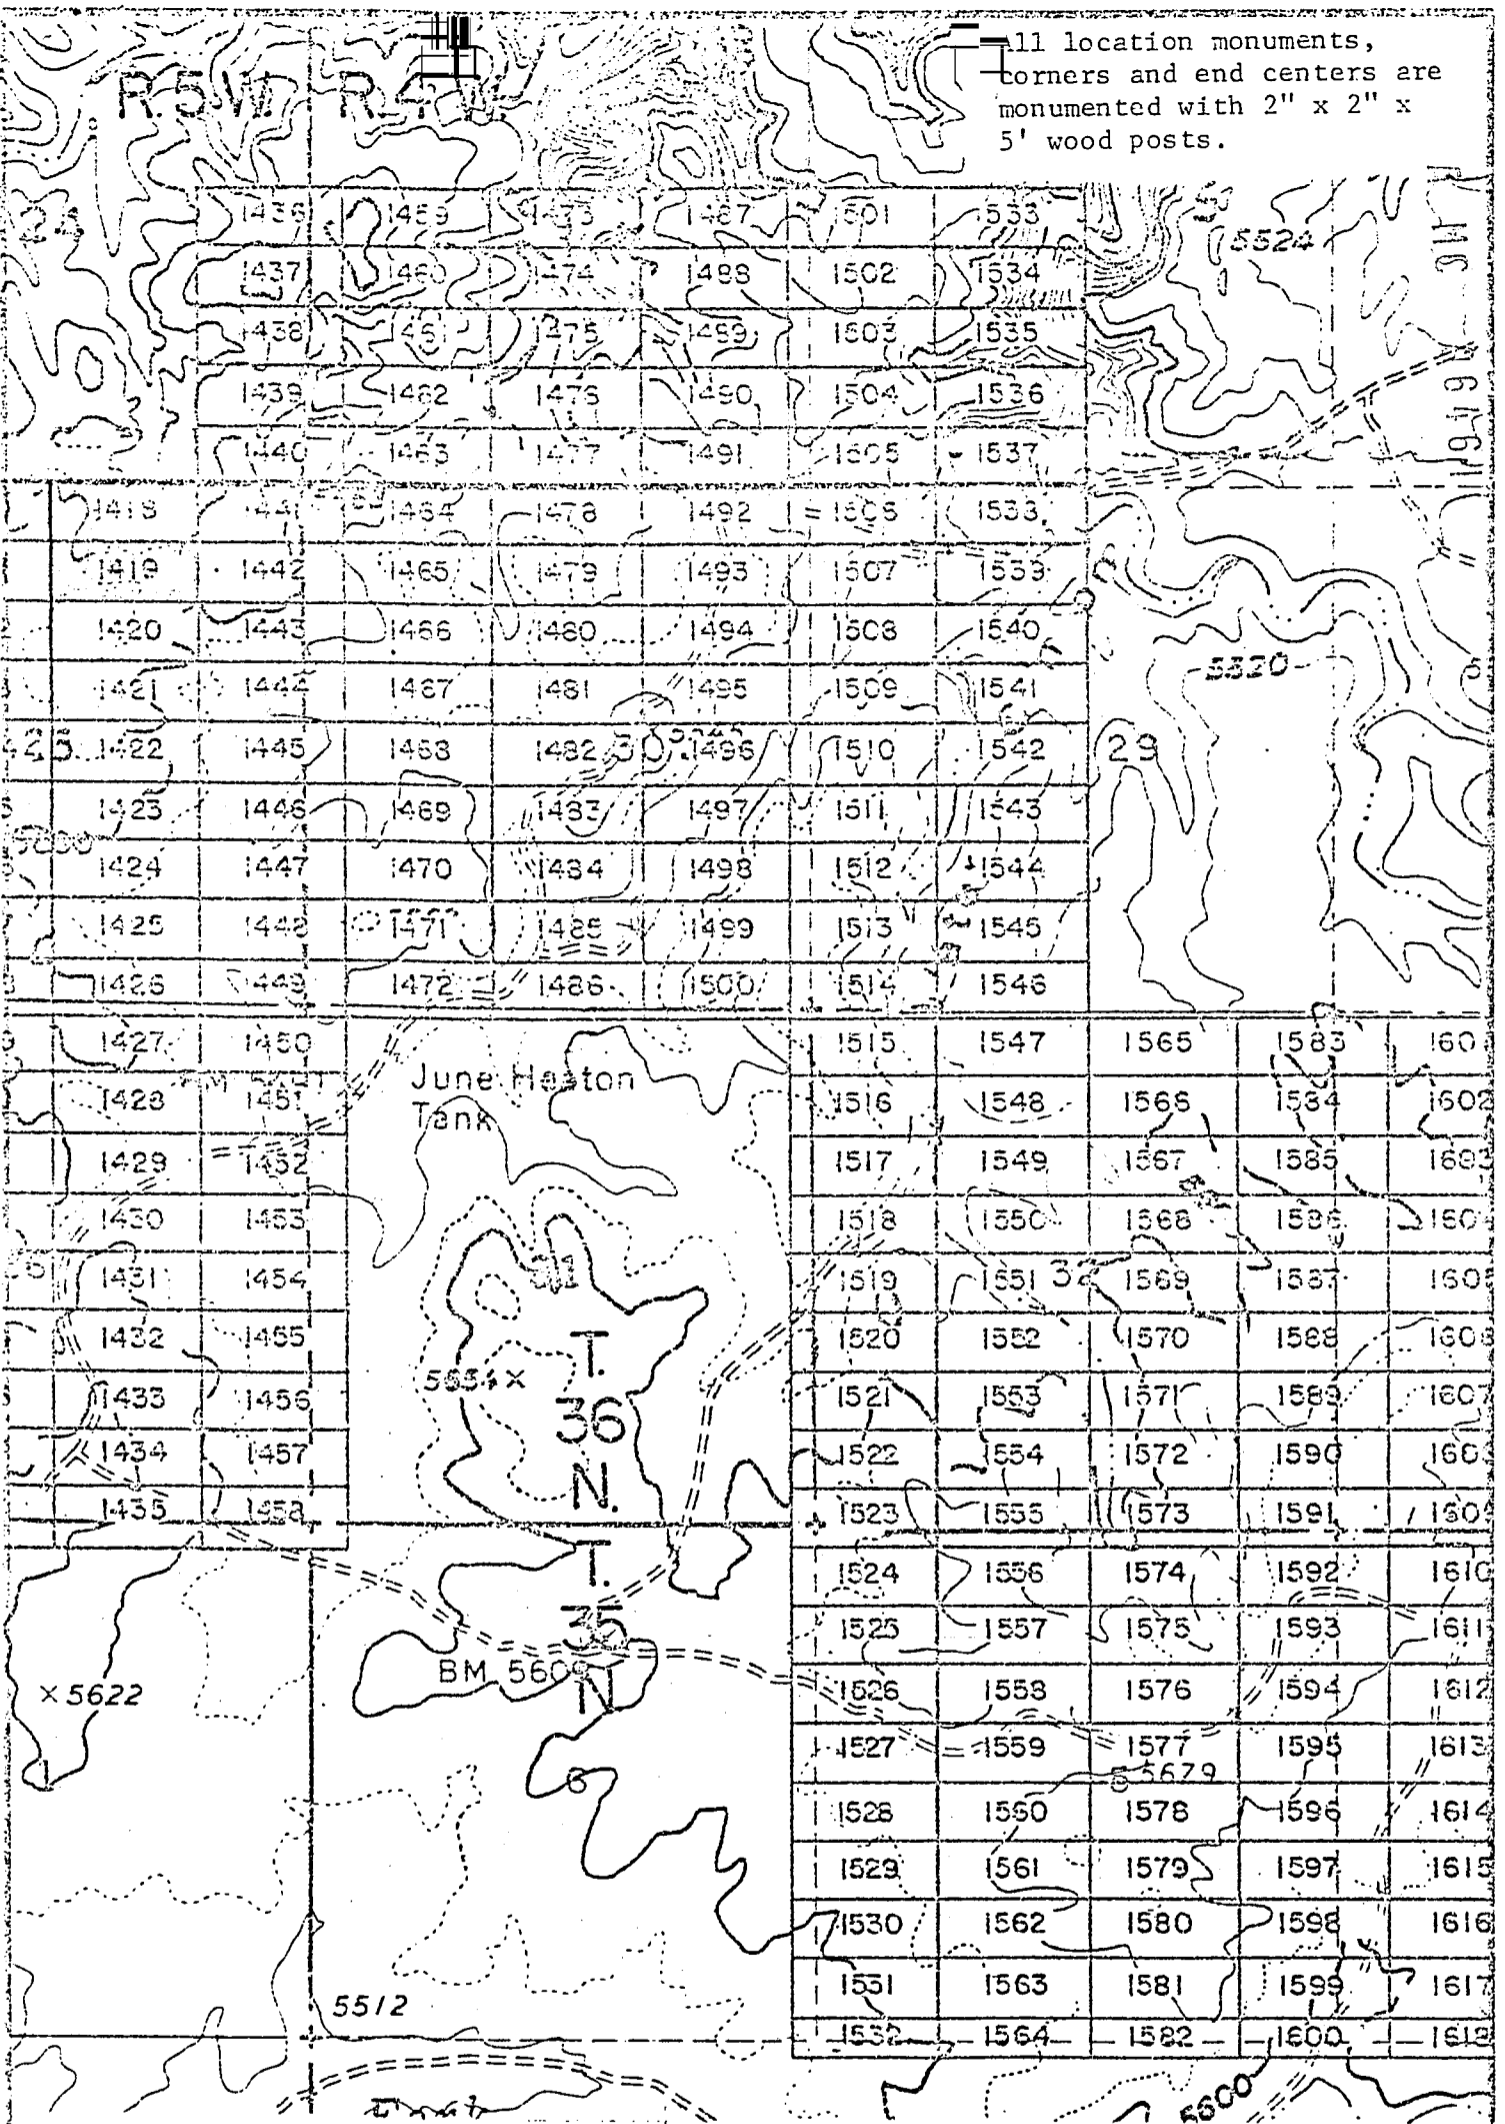 All location monuments,
corners and end centers are
monumented with 2" x 2" x
5' wood posts.
R.5W. R.4W.
24
1436 1459 1473 1487 1501 1533
5524
1437 1460 1474 1488 1502 1534
1438 1461 1475 1489 1503 1535
1439 1462 1476 1490 1504 1536
1440 1463 1477 1491 1505 1537
1418 1441 1464 1478 1492 1506 1538
1419 1442 1465 1479 1493 1507 1539
1420 1443 1466 1480 1494 1508 1540
1421 1444 1467 1481 1495 1509 1541
5520
25 1422 1445 1468 1482 30 1496 1510 1542 29
1423 1446 1469 1483 1497 1511 1543
1424 1447 1470 1484 1498 1512 1544
1425 1448 1471 1485 1499 1513 1545
1426 1449 1472 1486 1500 1514 1546
1427 1450 1515 1547 1565 1583 160
June Heaton
Tank
1428 1451 1516 1548 1566 1584 1602
1429 1452 1517 1549 1567 1585 1603
1430 1453 1518 1550 1568 1586 160
1431 1454 31 1519 1551 32 1569 1587 1605
1432 1455 1520 1552 1570 1588 1606
T.
36
N.
5654
1433 1456 1521 1553 1571 1589 1607
1434 1457 1522 1554 1572 1590 1608
1435 1458 1523 1555 1573 1591 1609
T.
35
N
1524 1556 1574 1592 1610
1525 1557 1575 1593 1611
BM 5609
×5622
1526 1558 1576 1594 1612
1527 1559 1577 1595 1613
6
5 5679
1528 1560 1578 1596 1614
1529 1561 1579 1597 1615
1530 1562 1580 1598 1616
1531 1563 1581 1599 1617
5512
1532 1564 1582 1600 1618
5600